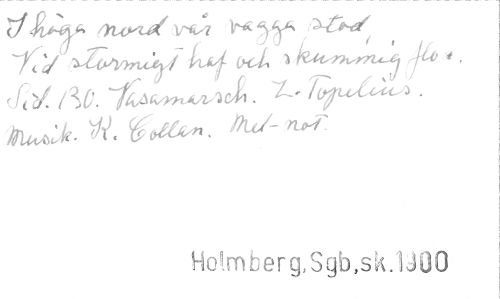 I höga nord vår vagga stod,
Vid stormigt haf och skummig flo.
Sid. 130. Vasamarsch. Z. Topelius.
Musik. K. Collan. Mel-not.
Holmberg,Sgb,sk.1900